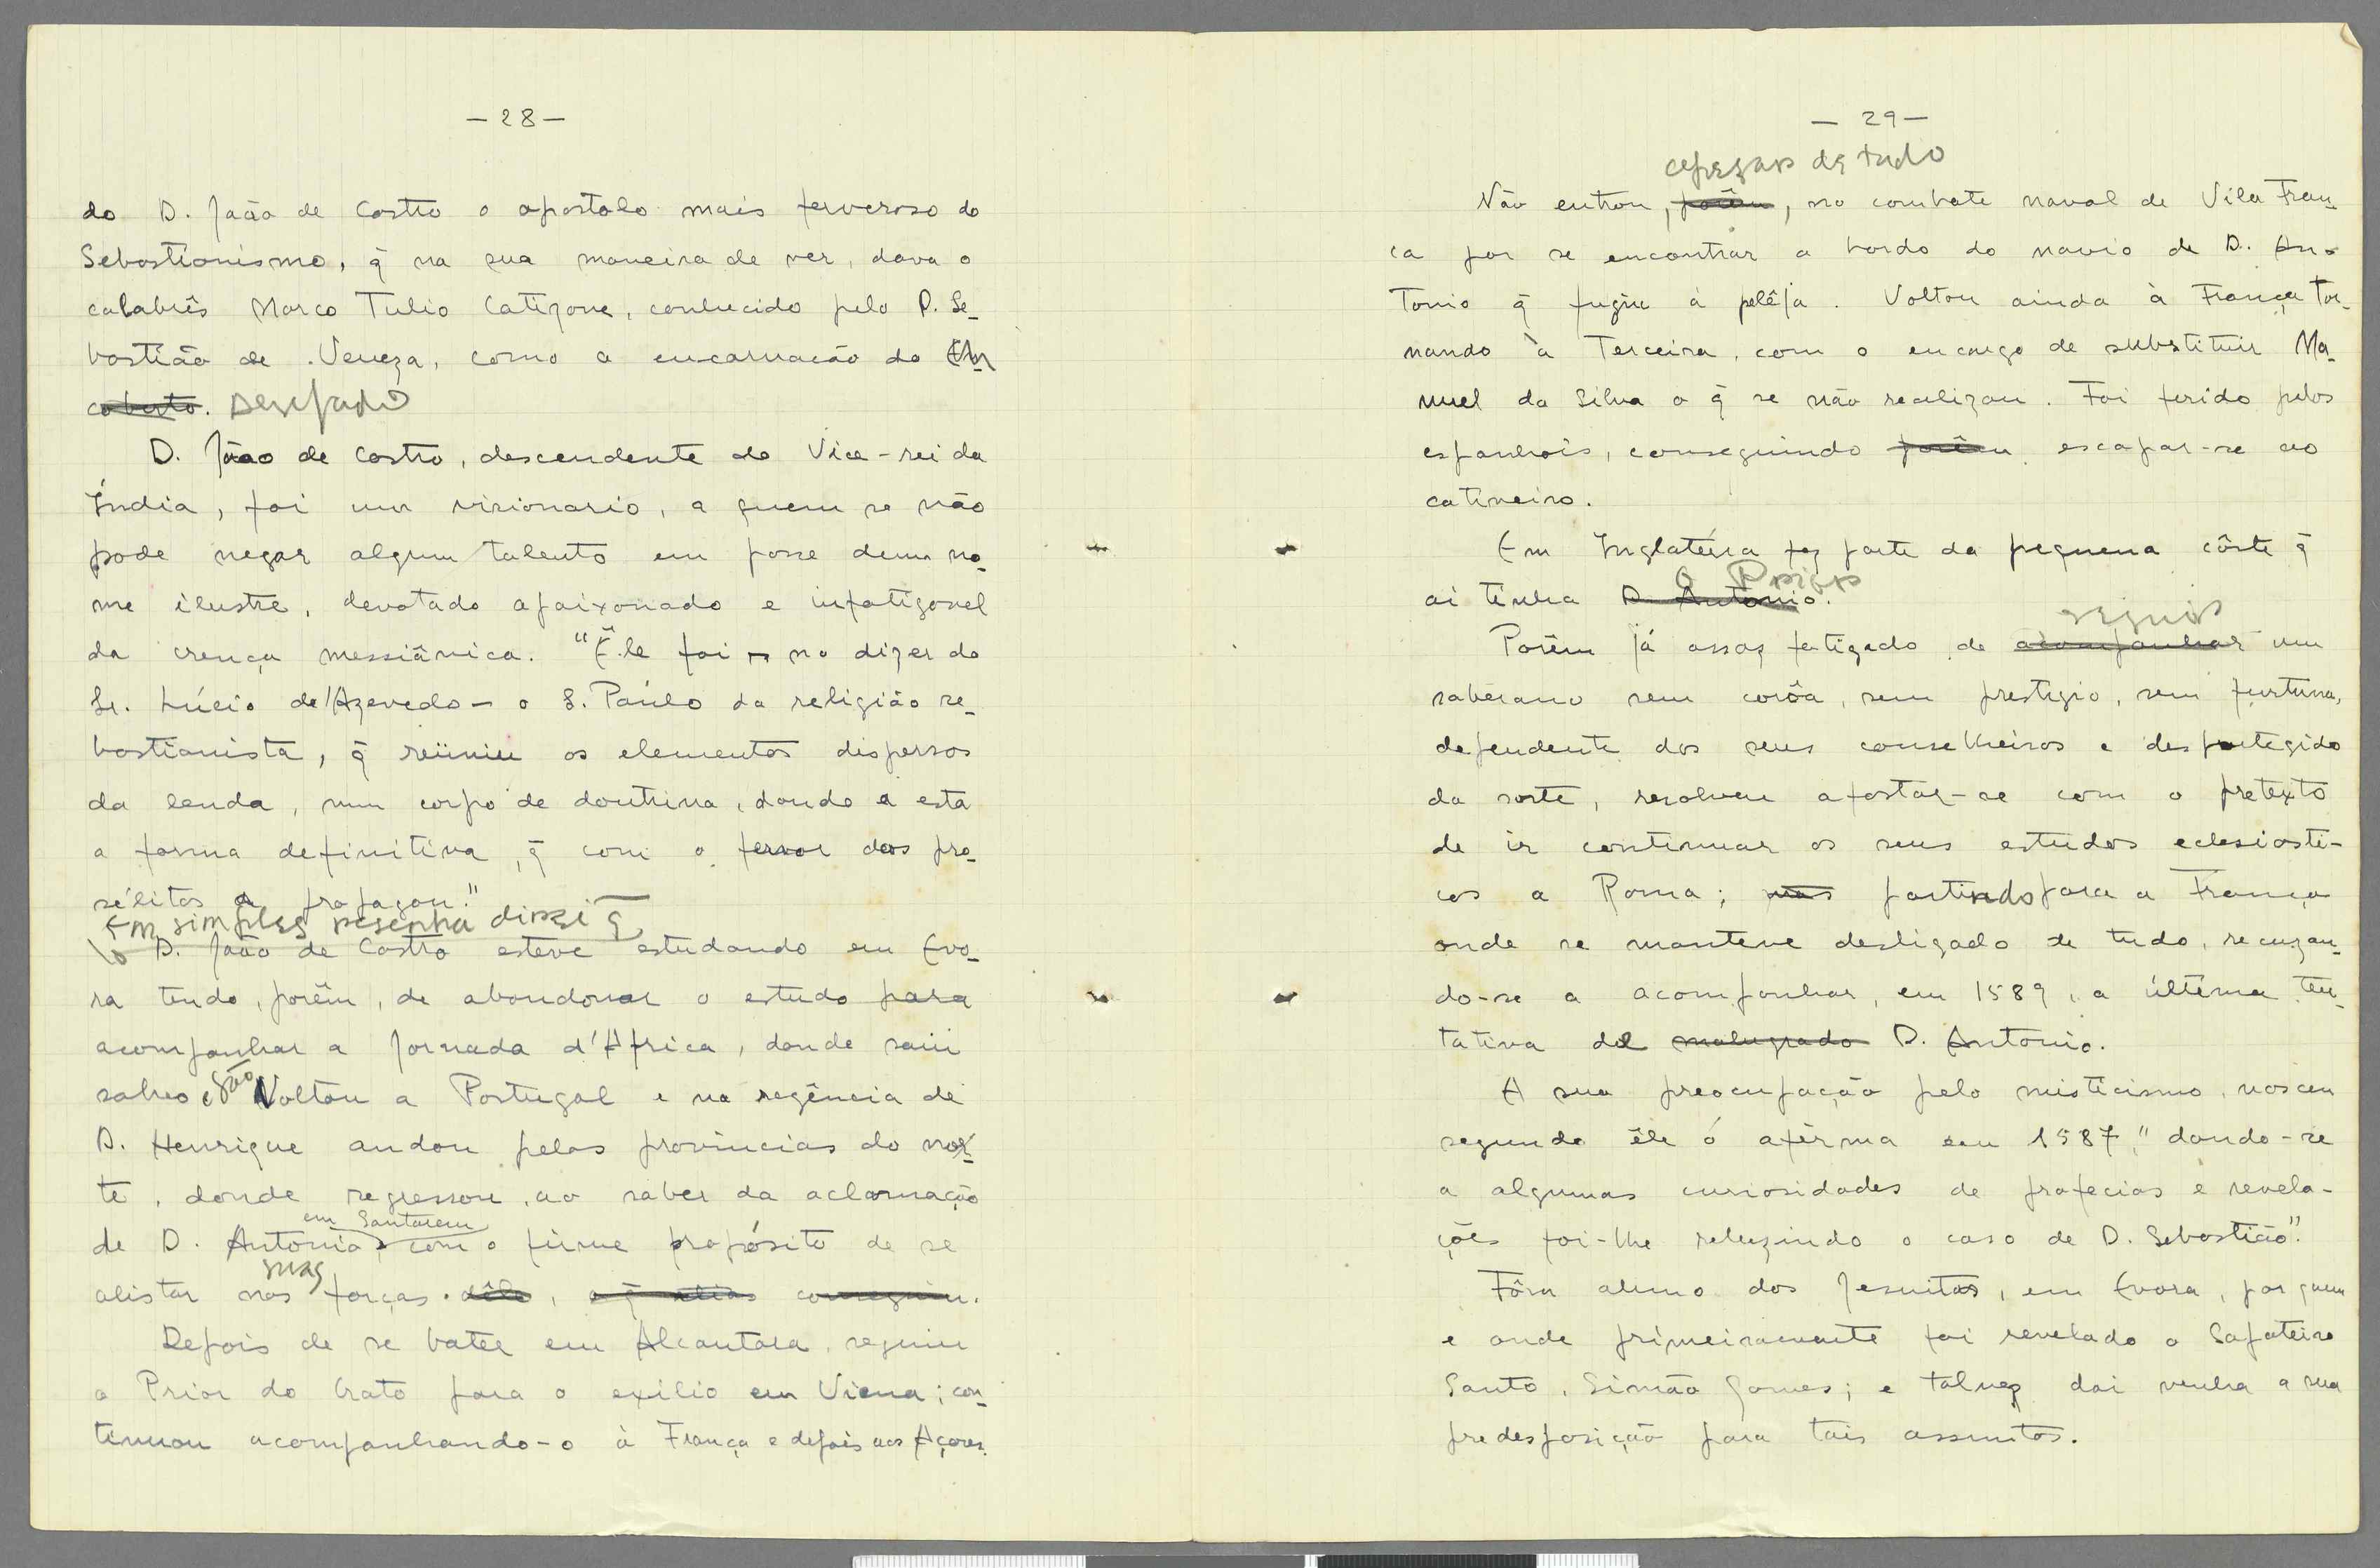 — 28 —
do D. João de Castro o apostolo mais fervoroso do
Sebastianismo, q̃ na sua maneira de ver, dava o
calabrês Marco Tulio Catizone, conhecido pelo D. Se-
bastião de Veneza, como a encarnação do En
coberto. Desejado
D. João de Castro, descendente do Vice-rei da
Índia, foi um visionario, a quem se não
pode negar algum talento em posse dum no-
me ilustre, devotado apaixonado e infatigavel
da crença messiânica. "Êle foi – no dizer do
Sr. Lúcio de Azevedo – o S. Paulo da religião se-
bastianista, q̃ reüniu os elementos dispersos
da lenda, num corpo de doutrina, dando a esta
a forma definitiva, q̃ com o fervor dos pro-
sélitos a propagou."
Em simples resenha direi q̃
D. João de Castro esteve estudando em Evo-
ra tendo, porêm, de abandonar o estudo para
acompanhar a Jornada d'Africa, donde saíu
salvo e são
Voltou a Portugal e na regência de
D. Henrique andou pelas provincias do nor-
te, donde regressou, ao saber da aclamação
em Santarem
de D. Antonio, com o firme propósito de se
suas
alistar nas forças dêle, o q̃ aliás conseguiu.
Depois de se bater em Alcantara, seguiu
o Prior do Crato para o exilio em Viena; con-
tinuou acompanhando-o à França e depois aos Açores.
— 29 —
apezar de tudo
Não entrou, porêm, no combate naval de Vila Fran-
ca por se encontrar a bordo do navio de D. An-
tonio q̃ fugiu á pelêja. Voltou ainda à França tor-
nando à Terceira, com o encargo de substituir Ma-
nuel da Silva o q̃ se não realizou. Foi ferido pelos
espanhois, conseguindo porêm escapar-se ao
cativeiro.
Em Inglatérra fez parte da pequena côrte q̃
o Prior
ai tinha D. Antonio.
seguir
Porêm já assaz fatigado de acompanhar um
soberano sem corôa, sem prestigio, sem fortuna,
dependente dos seus conselheiros e desprotegido
da sorte, resolveu afastar-se com o pretexto
de ir continuar os seus estudos eclesiasti-
cos a Roma; mas partindo para a França
onde se manteve desligado de tudo, recuzan-
do-se a acompanhar, em 1589, a última ten-
tativa de malogrado D. Antonio.
A sua preocupação pelo misticismo, nasceu
segundo êle ó afirma em 1587, "dando-se
a algumas curiosidades de profecias e revela-
ções foi-lhe reluzindo o caso de D. Sebastião."
Fôra aluno dos Jesuitas, em Evora, por quem
e onde primeiramente foi revelado o Sapateiro
Santo, Simão Gomes; e talvez daí venha a sua
predesposição para tais assuntos.